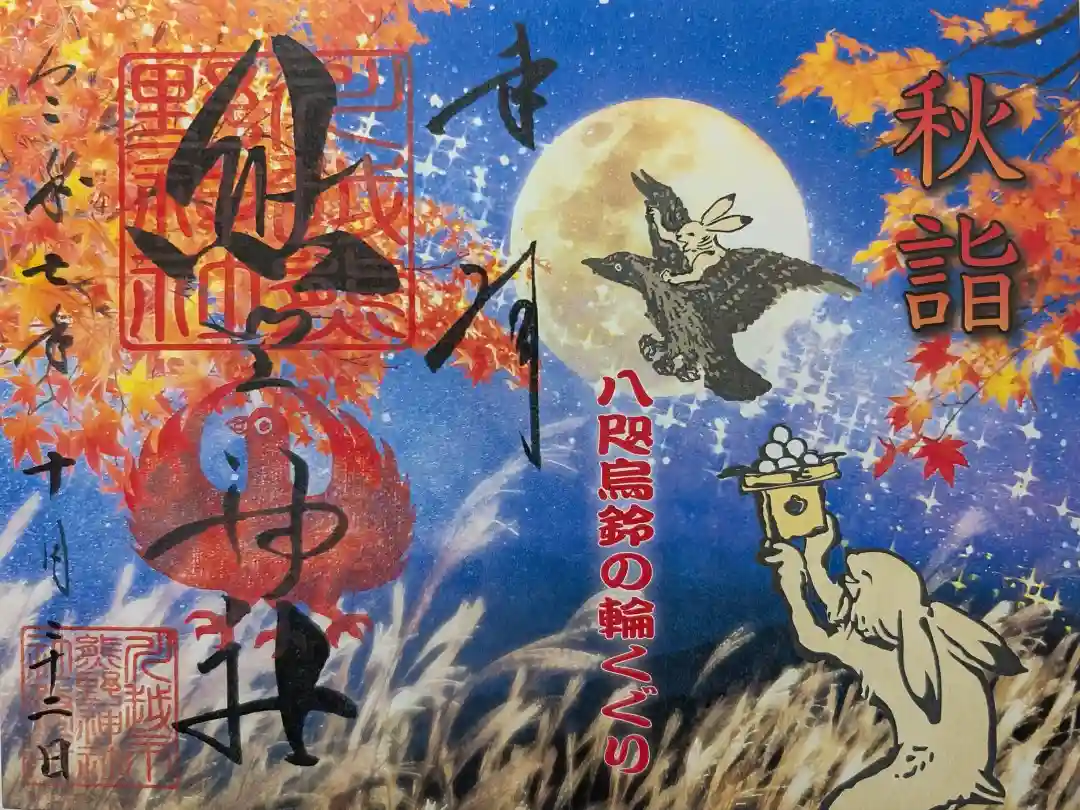 秋詣
八咫烏鈴の輪くぐり
奉拝
川越熊
野神社
熊野神社
令和七年十月二十二日
川越市
熊野神社